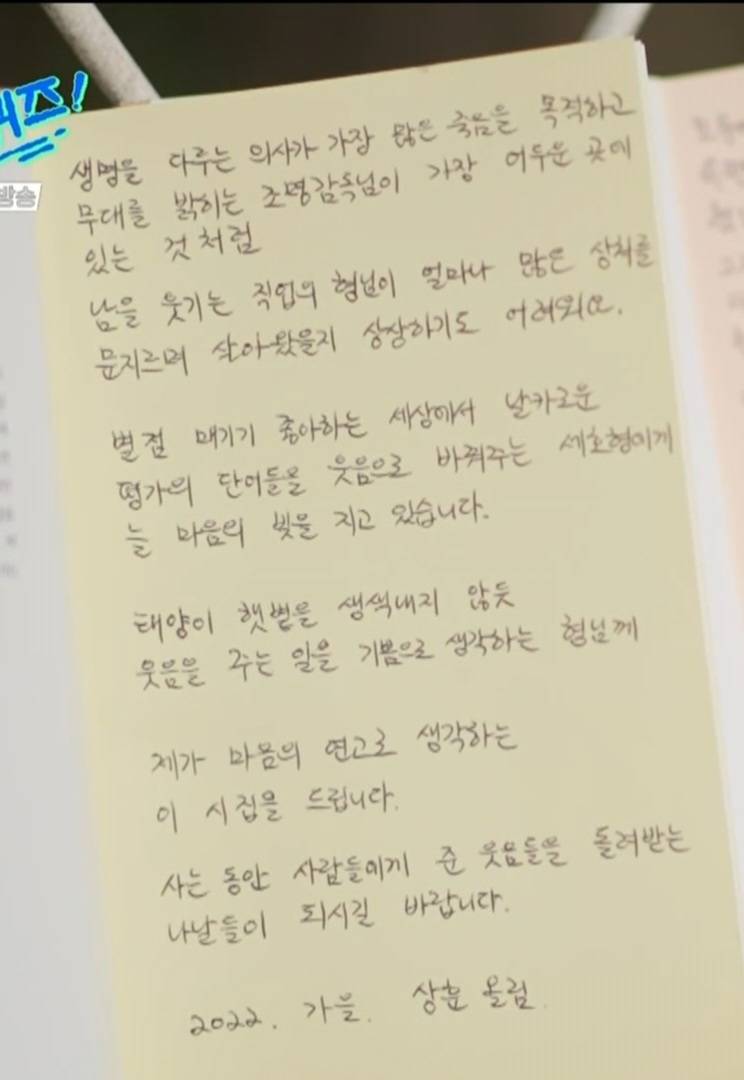 퀴즈!
방송
생명을 다루는 의사가 가장 많은 죽음을 목격하고
무대를 밝히는 조명감독님이 가장 어두운 곳에
있는 것처럼
남을 웃기는 직업의 형님이 얼마나 많은 상처를
문지르며 살아왔을지 상상하기도 어려워요.
별점 매기기 좋아하는 세상에서 날카로운
평가의 단어들을 웃음으로 바꿔주는 세호형에게
늘 마음의 빚을 지고 있습니다.
태양이 햇볕을 생색내지 않듯
웃음을 주는 일을 기쁨으로 생각하는 형님께
제가 마음의 연고로 생각하는
이 시집을 드립니다.
사는 동안 사람들에게 준 웃음들을 돌려받는
나날들이 되시길 바랍니다.
2022. 가을. 상훈 올림.